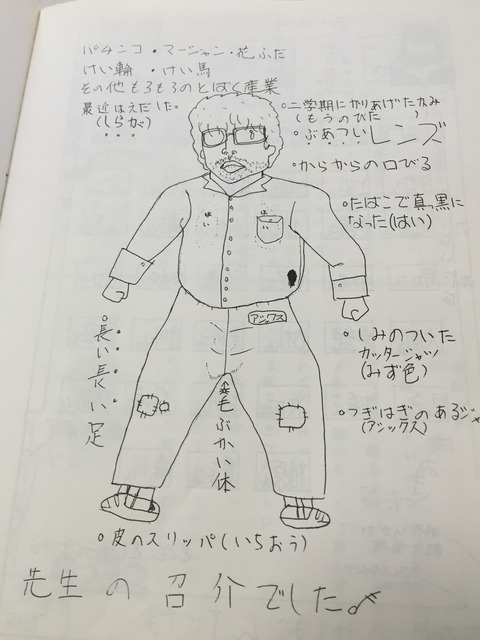 パチンコ・マージャン・花ふだ
けい輪・けい馬
その他もろもろのとばく産業
最近はえだした。
(しらが)
・・・
○二学期にかりあげたかみ
(もうのびた)
○ぶあついレンズ
○からからの口びる
○たばこで真っ黒に
なった(はい)
はい
はい
アシックス
○しみのついた
カッターシャツ
(みず色)
長い長い足
毛ぶかい体
○つぎはぎのあるジャ
(アシックス)
○皮のスリッパ(いちおう)
先生の召介でした。